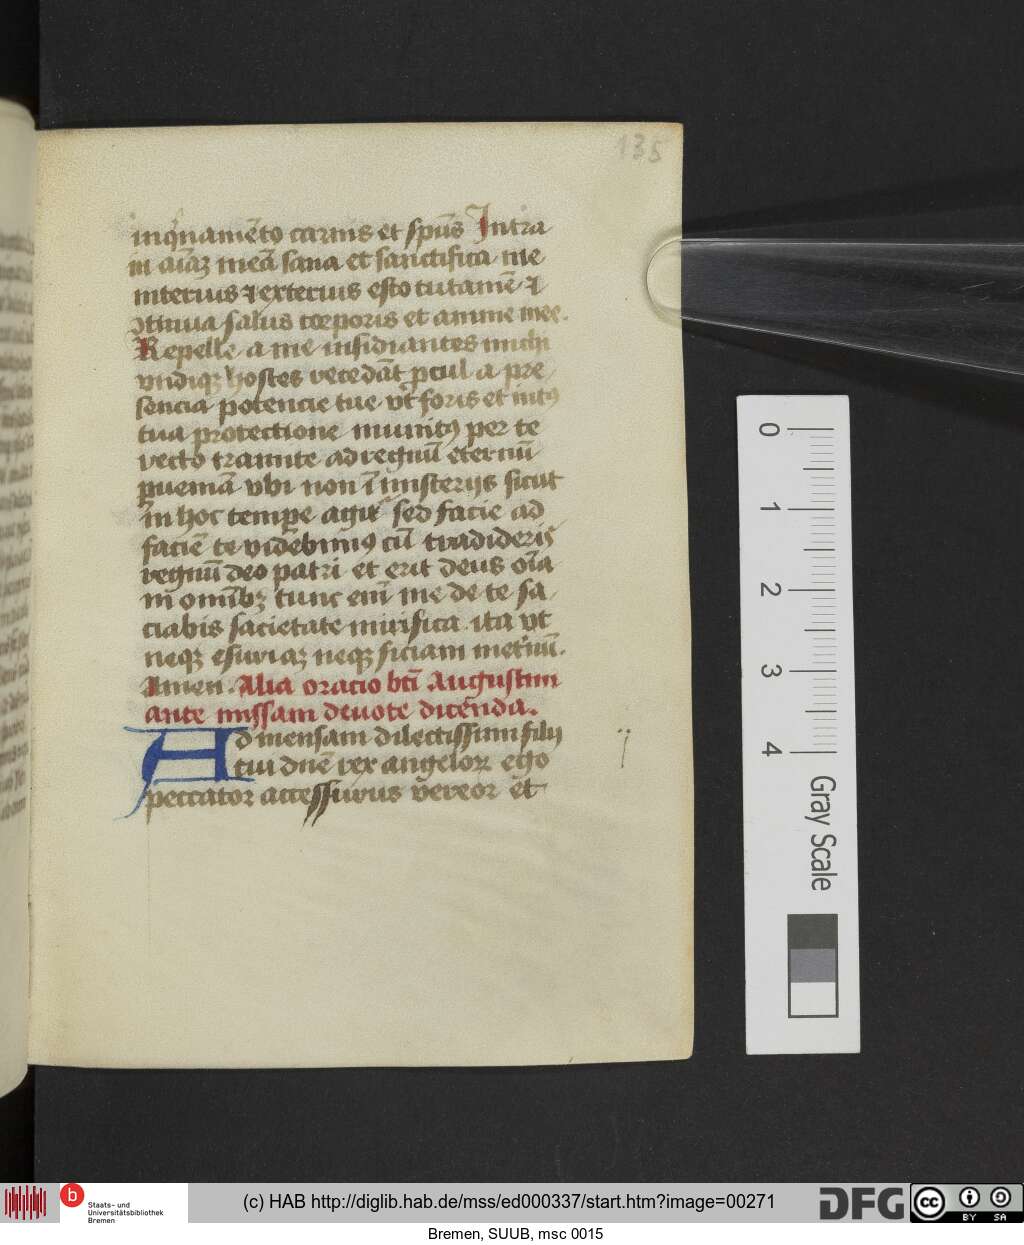 135
inq̄namēto carnis et sp̄us Intra
in aīaꝫ meā sana et sanctifica me
interius ⁊ exterius esto tutamē ⁊
ꝯtinua salus corporis et anime mee.
Repelle a me insidiantes michi
vndiqꝫ hostes recedāt ꝓcul a pre
sencia potencie tue vt foris et intꝰ
tua protectione munitꝰ per te
recto tramite ad regnū eternū
ꝑueniā vbi non ī misterijs sicut
in hoc tempe agit᷑ sed facie ad
faciē te videbimꝰ cū tradideris
regnū deo patri et erit deus oīa
in omībꝫ tunc enī me de te sa
ciabis sacietate mirifica ita vt
neqꝫ esuriaꝫ neqꝫ siciam
Amen. Alia oracio btī Augustini
ante missam deuote dicenda.
Ad mensam dilectissimi filij
tui dn̄e rex angeloꝝ ego
peccator accessurus vereor et
0
1
2
3
4
Gray Scale
b
Staats- und
Universitätsbibliothek
Bremen
(c) HAB http://diglib.hab.de/mss/ed000337/start.htm?image=00271
DFG
cc
BY SA
Bremen, SUUB, msc 0015